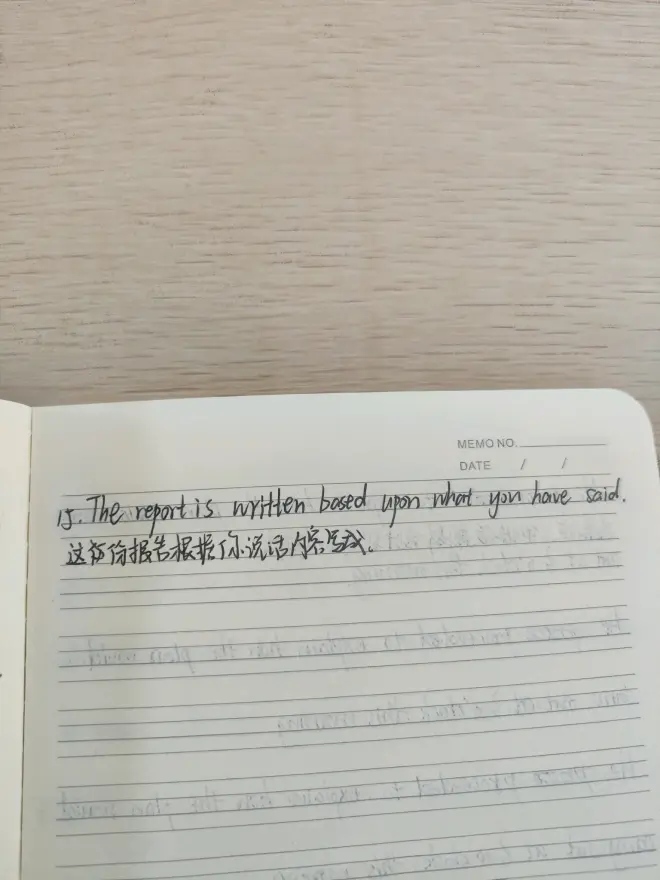 MEMO NO.
DATE / /
15. The report is written based upon what you have said.
这份报告根据你说话内容写成。